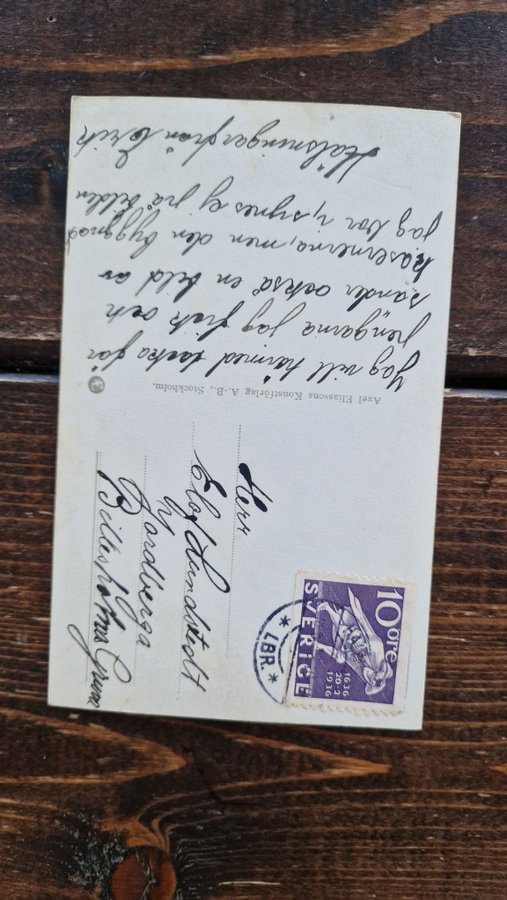 Jag vill härmed tacka för
pengarna jag fick och
sänder också en bild av
kasernerna, men den byggnad
jag bor i, synes ej på bilden
Hälsningar från Erik
Axel Eliassons Konstförlag A.-B., Stockholm.
10 ÖRE
1636
20/2
1936
SVERIGE
* LBR *
Herr
Elof Lundstedt
Nordberga
Billesholms Gruva